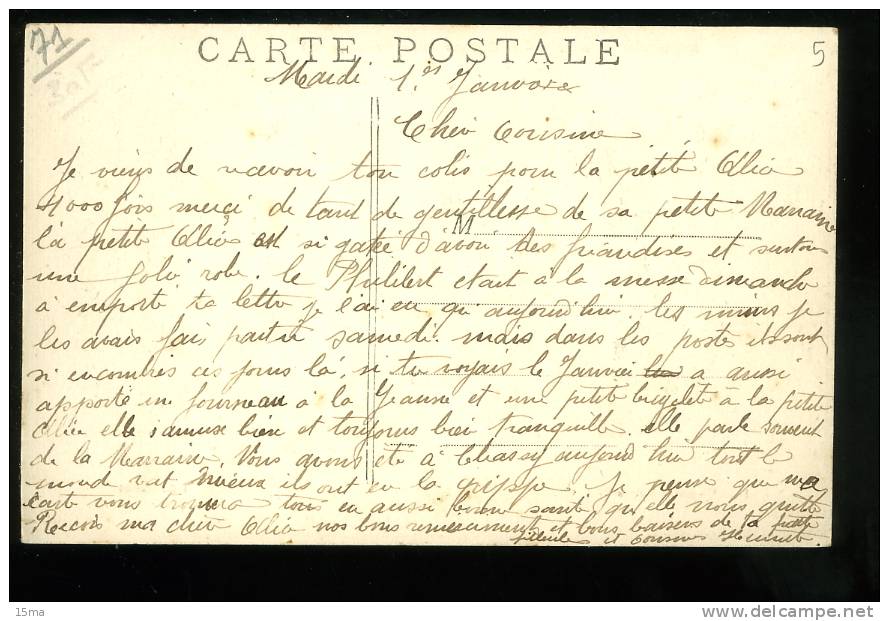 71
CARTE POSTALE
5
Mardi 1er Janvier
Cher Cousine
Je viens de recevoir ton colis pour la petite Alia
1000 fois merci de tant de gentillesse de sa petite Marraine
M
la petite Alia est si gatée d'avoir des friandises et surtout
une jolie robe. le Philibert etait à la messe dimanche
à emporté ta lettre je l'ai eu qu aujourd'hui. les miens je
les avais fais partir samedi. mais dans les poste ils sont
si encombres ces jours là. si tu voyais le Janvier a aussi
apporté un fourneau a la Jeanne et une petite biciclete à la petite
Alia elle s'amuse bien et toujours bien tranquille. elle parle souvent
de la Marraine. Vous avons eté à Chassy aujourd'hui tout le
monde vat mieux ils ont eu la grippe. Je pense que ma
carte vous trouvera tous en aussi bonne santé qu'elle nous quitte
Recois ma cher Alia nos bons remerciements et bons baisers de ta petite
filleule et cousins
15ma
www.delcampe.net